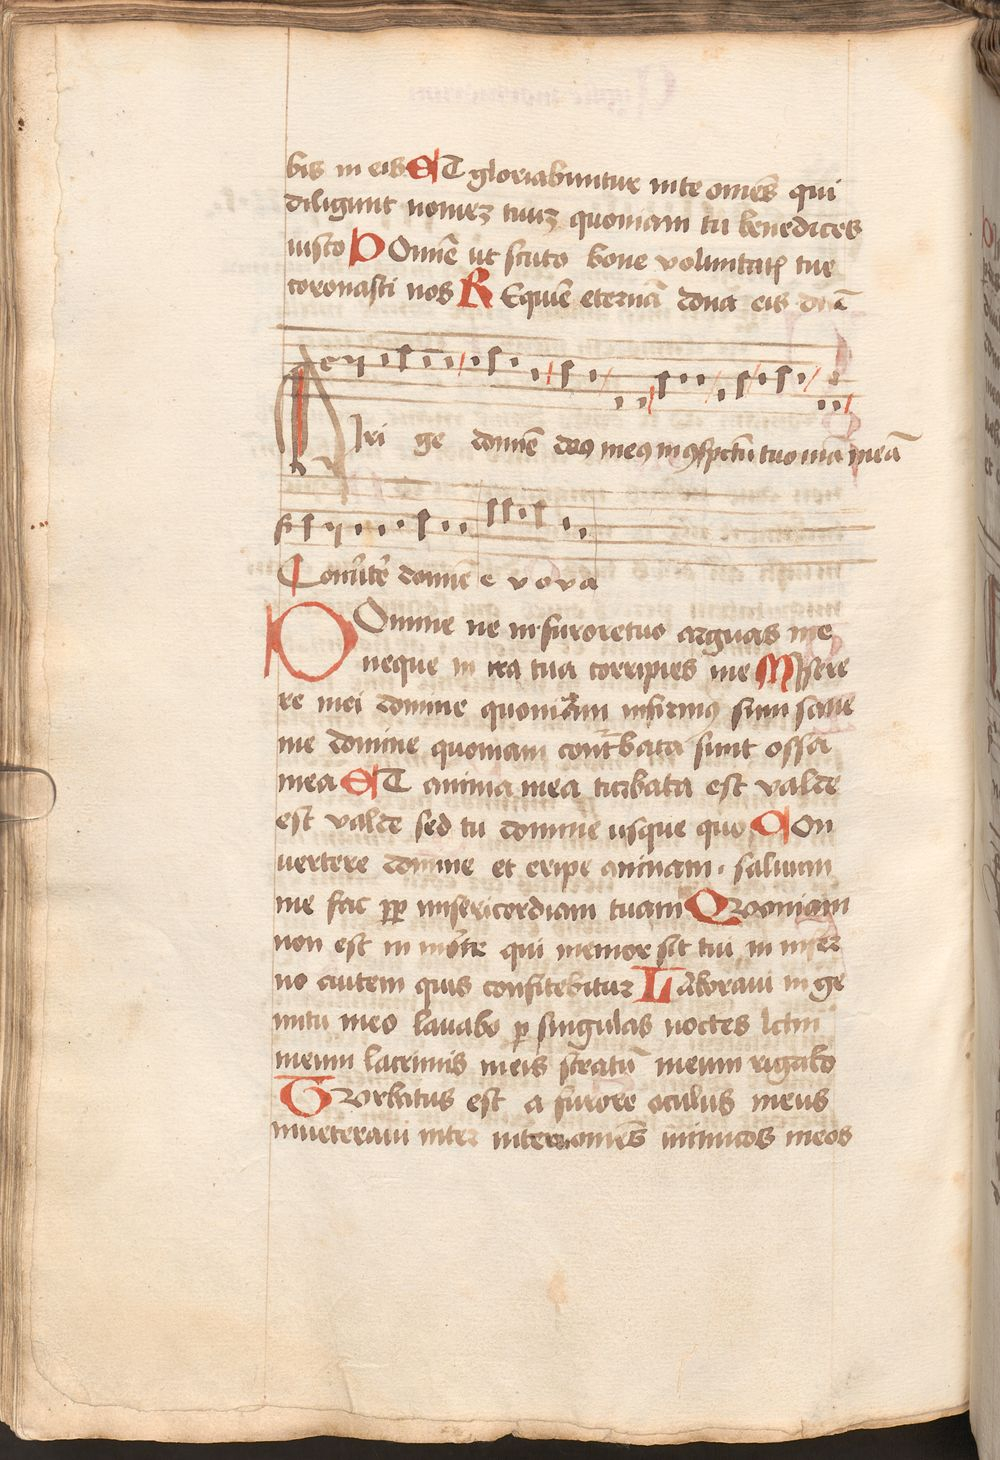 bis in eis ET gloriabuntur in te om̄es qui
diligunt nomez tuuz quoniam tu benedices
iusto DOmīe ut scuto bone voluntatꝭ tue
coronasti nos REquiē eternā dona eis dnē
Diri ge domīe deus meꝰ in ꝯspctū tuo viā meā
Conūte domīe e v o v a
DOmine ne in furore tuo arguas me
neque in ira tua corripies me Misere
re mei domine quoniam infirmꝰ sum sana
me domine quoniam conturbata sunt ossa
mea ET anima mea turbata est valde
est valde sed tu domine usque quo COn
vertere domine et eripe animam · saluum
me fac ꝓp misericordiam tuam Qvoniam
non est in morte qui memor sit tui in infer
no autem quis confitebitur Laboraui in ge
mitu meo lauabo ꝑ singulas noctes lctm
meum lacrimis meis stratū meum rigabo
Tvrbatus est a furore oculus meus
inueteraui inter inter om̄es inimicos meos